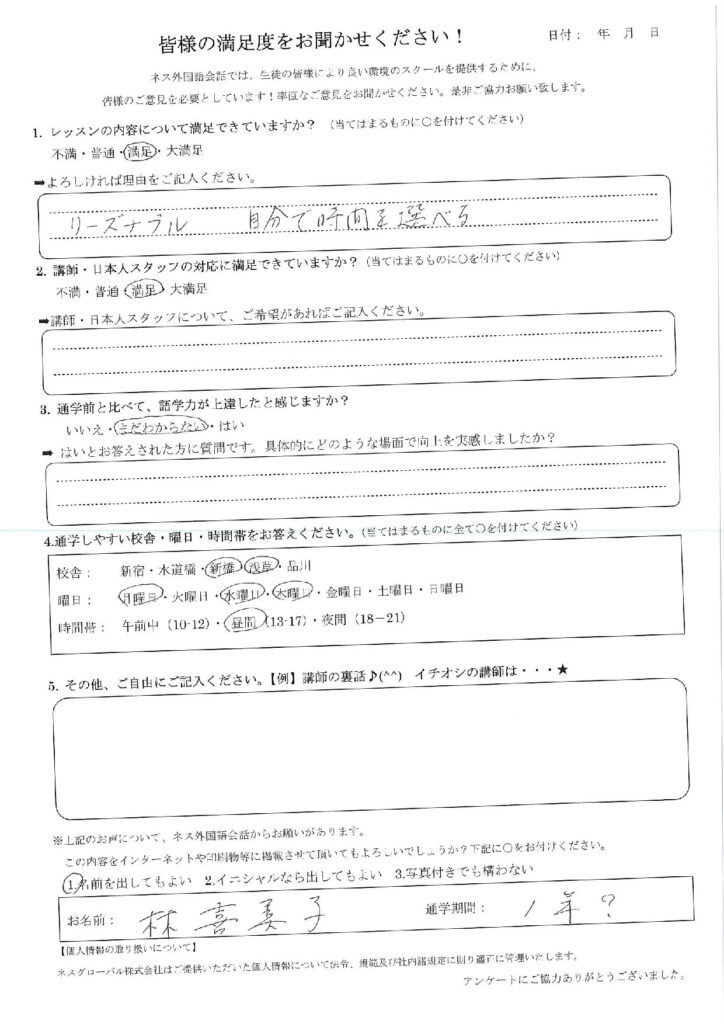 皆様の満足度をお聞かせください！
日付： 年 月 日
ネス外国語会話では、生徒の皆様により良い環境のスクールを提供するために、
皆様のご意見を必要としています！率直なご意見をお聞かせください。是非ご協力お願い致します。
1. レッスンの内容について満足できていますか？ （当てはまるものに○を付けてください）
不満・普通・満足・大満足
➡よろしければ理由をご記入ください。
リーズナブル 自分で時間を選べる
2. 講師・日本人スタッフの対応に満足できていますか？（当てはまるものに○を付けてください）
不満・普通・満足・大満足
➡講師・日本人スタッフについて、ご希望があればご記入ください。
3. 通学前と比べて、語学力が上達したと感じますか？
いいえ・まだわからない・はい
➡ はいとお答えされた方に質問です。具体的にどのような場面で向上を実感しましたか？
4.通学しやすい校舎・曜日・時間帯をお答えください。（当てはまるものに全て○を付けてください）
校舎： 新宿・水道橋・新橋・浅草・品川
曜日： 月曜日・火曜日・水曜日・木曜日・金曜日・土曜日・日曜日
時間帯： 午前中（10-12）・昼間（13-17）・夜間（18－21）
5. その他、ご自由にご記入ください。【例】講師の裏話♪(^^) イチオシの講師は・・・★
※上記のお声について、ネス外国語会話からお願いがあります。
この内容をインターネットや印刷物等に掲載させて頂いてもよろしいでしょうか？下記に○をお付けください。
1.名前を出してもよい 2.イニシャルなら出してもよい 3.写真付きでも構わない
お名前： 林 喜美子 通学期間： 1年？
【個人情報の取り扱いについて】
ネスグローバル株式会社はご提供いただいた個人情報について法令、規範及び社内諸規定に則り適正に管理いたします。
アンケートにご協力ありがとうございました。